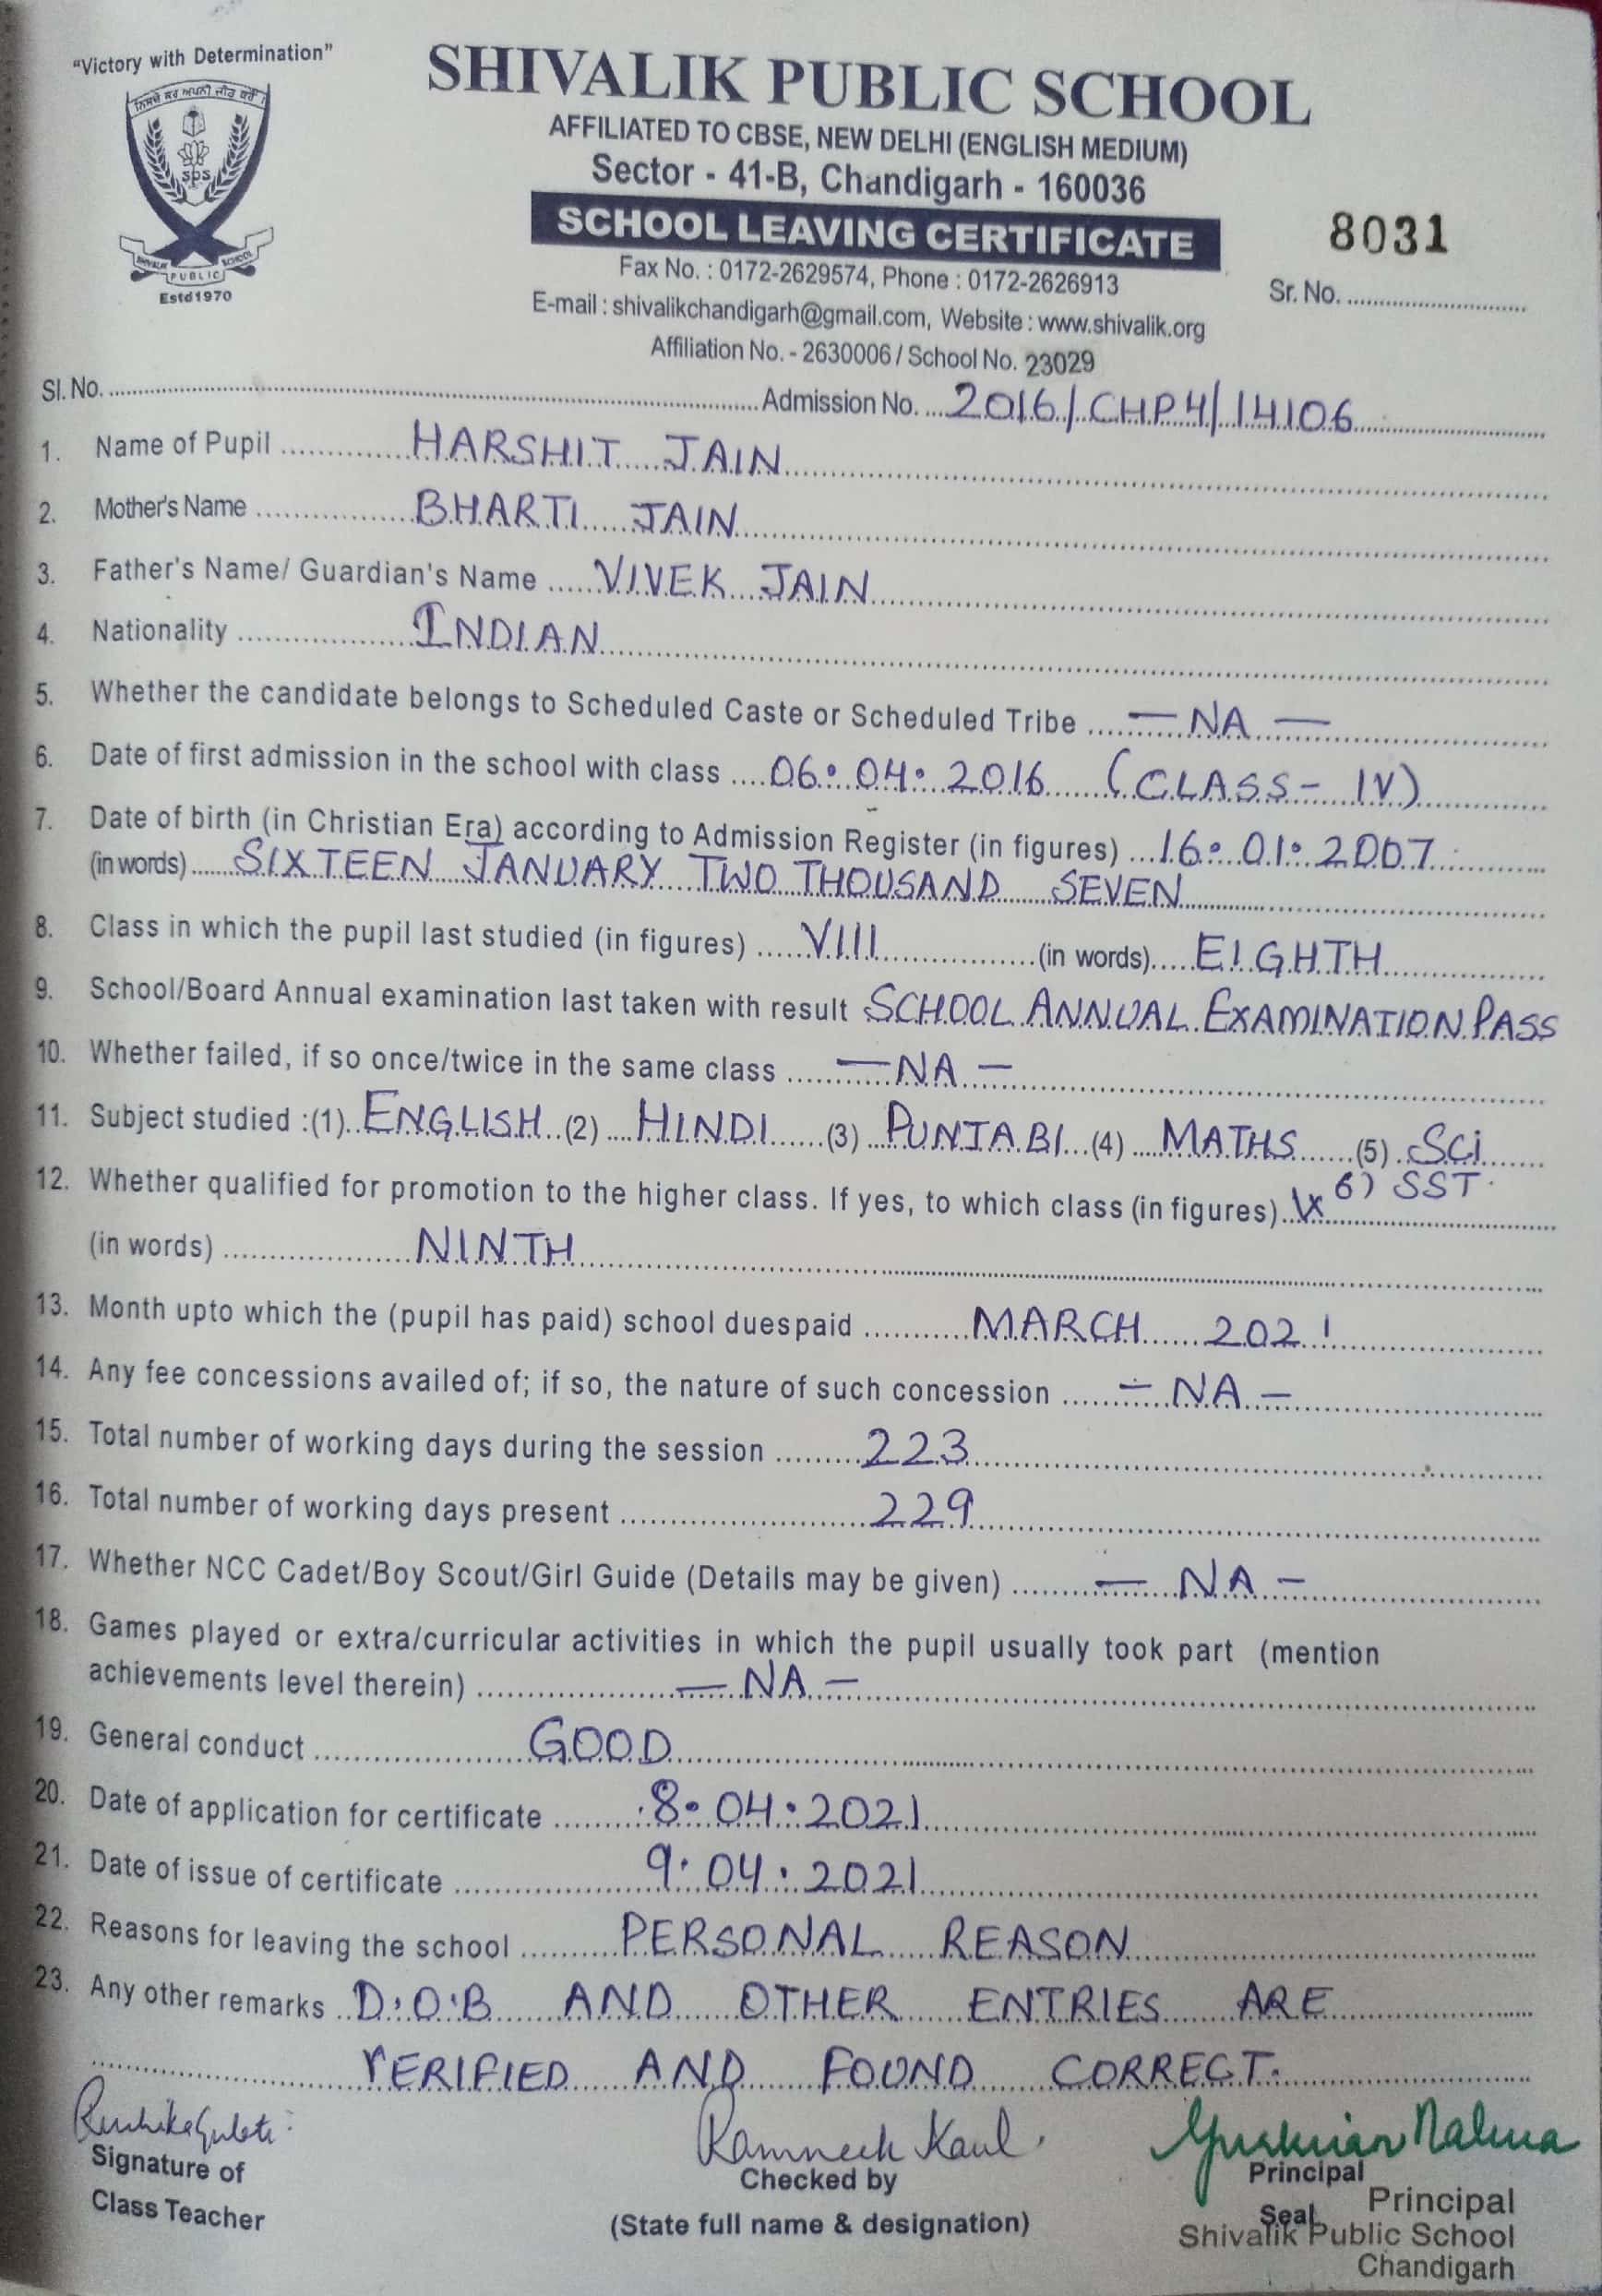 "Victory with Determination"
SHIVALIK PUBLIC SCHOOL
AFFILIATED TO CBSE, NEW DELHI (ENGLISH MEDIUM)
Sector - 41-B, Chandigarh - 160036
SCHOOL LEAVING CERTIFICATE
8031
Fax No. : 0172-2629574, Phone : 0172-2626913
Sr. No.
E-mail : shivalikchandigarh@gmail.com, Website : www.shivalik.org
Affiliation No. - 2630006 / School No. 23029
SPS
SHIVALIK PUBLIC SCHOOL
Estd 1970
Sl. No. Admission No. 2016/CHP4/14106
1. Name of Pupil HARSHIT JAIN
2. Mother's Name BHARTI JAIN
3. Father's Name/ Guardian's Name VIVEK JAIN
4. Nationality INDIAN
5. Whether the candidate belongs to Scheduled Caste or Scheduled Tribe — NA —
6. Date of first admission in the school with class 06.04.2016 (CLASS - IV)
7. Date of birth (in Christian Era) according to Admission Register (in figures) 16.01.2007
(in words) SIXTEEN JANUARY TWO THOUSAND SEVEN
8. Class in which the pupil last studied (in figures) VIII (in words) EIGHTH
9. School/Board Annual examination last taken with result SCHOOL ANNUAL EXAMINATION PASS
10. Whether failed, if so once/twice in the same class — NA —
11. Subject studied :(1) ENGLISH (2) HINDI (3) PUNJABI (4) MATHS (5) SCI
6) SST.
12. Whether qualified for promotion to the higher class. If yes, to which class (in figures) IX
(in words) NINTH
13. Month upto which the (pupil has paid) school duespaid MARCH 2021
14. Any fee concessions availed of; if so, the nature of such concession — NA —
15. Total number of working days during the session 223
16. Total number of working days present 229
17. Whether NCC Cadet/Boy Scout/Girl Guide (Details may be given) — NA —
18. Games played or extra/curricular activities in which the pupil usually took part (mention
achievements level therein) — NA —
19. General conduct GOOD
20. Date of application for certificate 8.04.2021
21. Date of issue of certificate 9.04.2021
22. Reasons for leaving the school PERSONAL REASON
23. Any other remarks D.O.B AND OTHER ENTRIES ARE
VERIFIED AND FOUND CORRECT.
Ramneek Kaul.
Signature of
Class Teacher
Checked by
(State full name & designation)
Principal
Seal
Principal
Shivalik Public School
Chandigarh